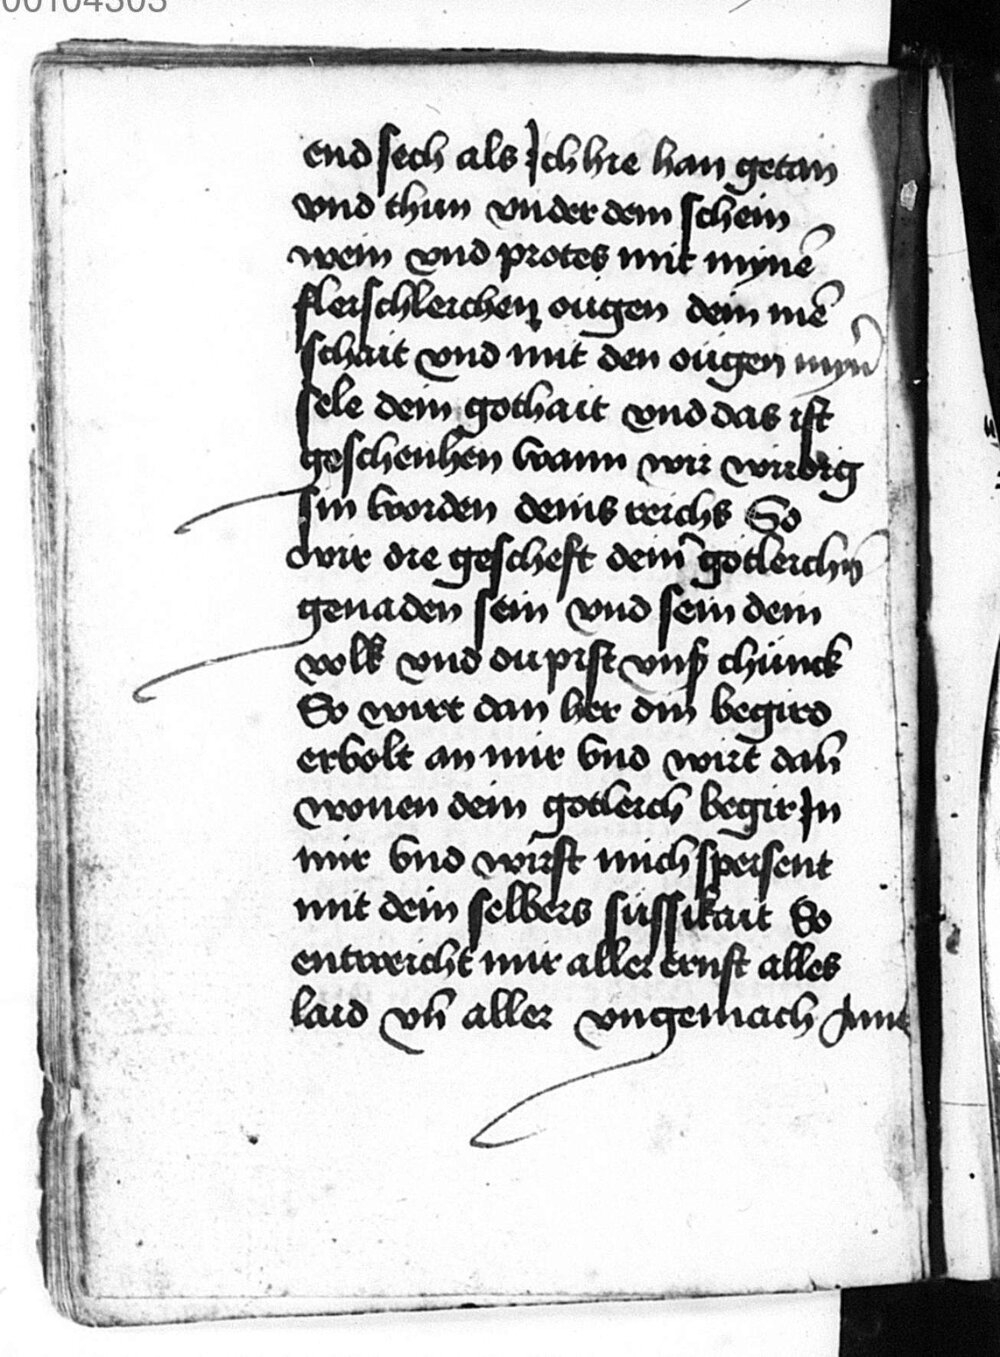 00104303
end sech als Ich hie han getan
vnd thun vnder dem schein
wein vnd protes mit mynē
fleischleichen ougen dein mē
schait vnd mit den ougen myn̄
sele dein gothait vnd das ist
geschenhen wann wir wirdig
sin worden deins reichs So
wir die gescheft dein̄ gotleichn̄
genaden sein vnd sein dem
volk vnd du pist vnß chünck
So wirt dan her din begird
erbolt an mir vnd wirt dan̄
wonen dein gotleich begir In
mir vnd wirst mich speisent
mit dein selbers süssikait So
entweicht mir aller ernst alles
laid vn̄ aller vngemach Amē